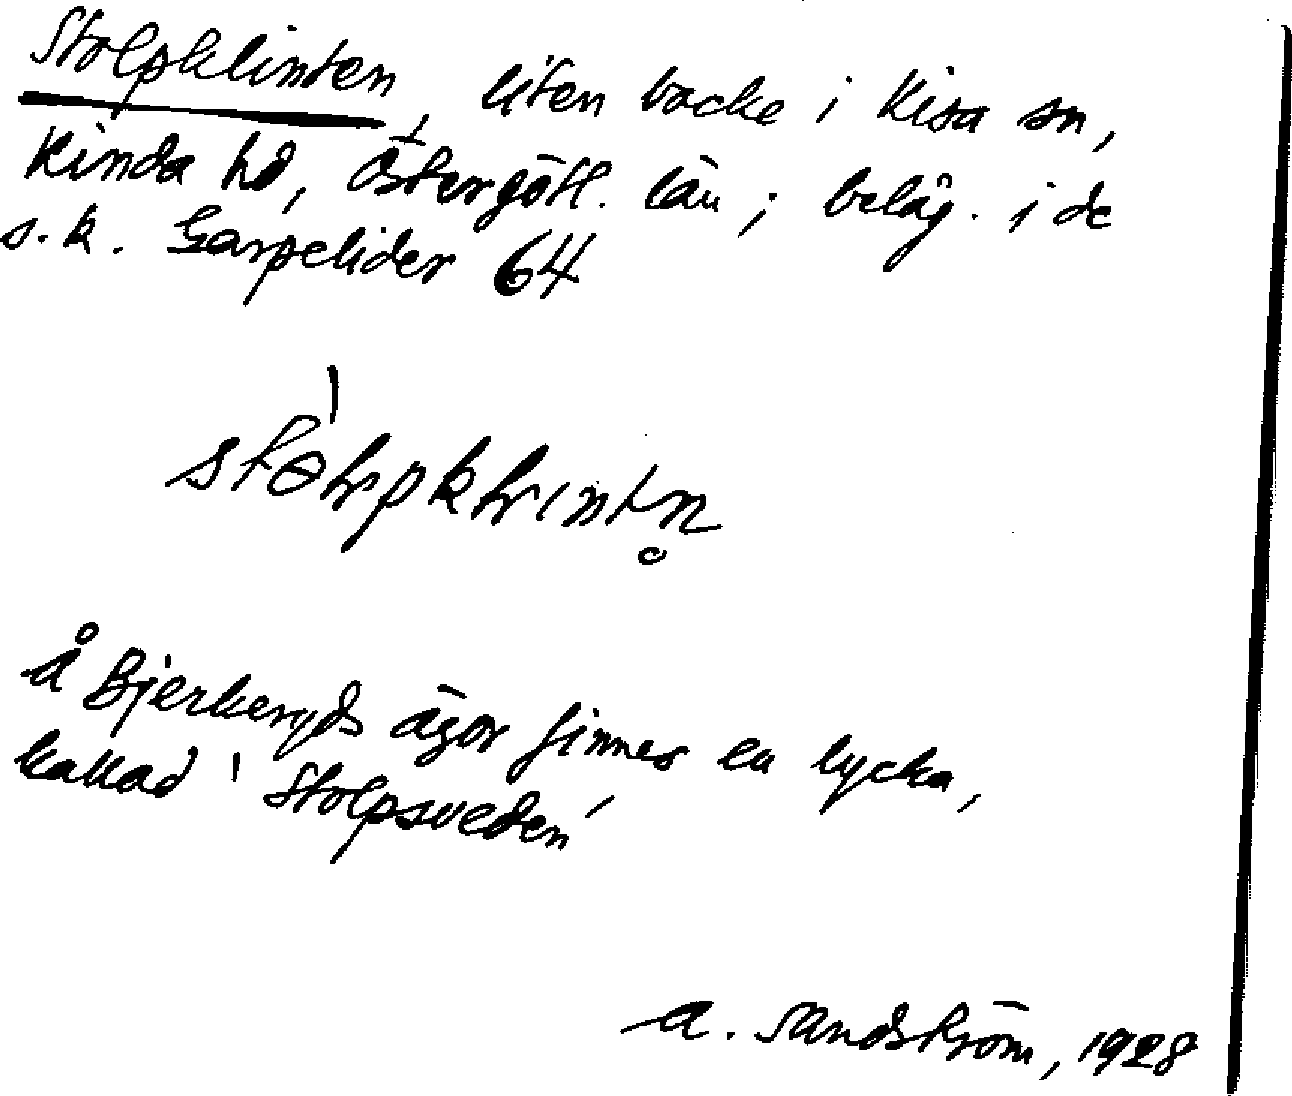 Stolpklinten, liten backe i Kisa sn,
Kinda hd, Östergötl. län; beläg. i de
s.k. Garpelider 64
å Bjerkeryds ägor finnes en lycka,
kallad 'Stolpsveden'
A. Sandström, 1928